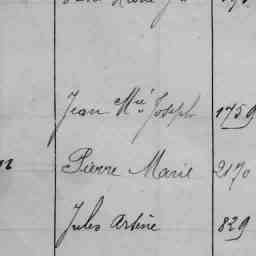 Jean Mie Joseph 1759
Pierre Marie 2170
Jules Arsène 829